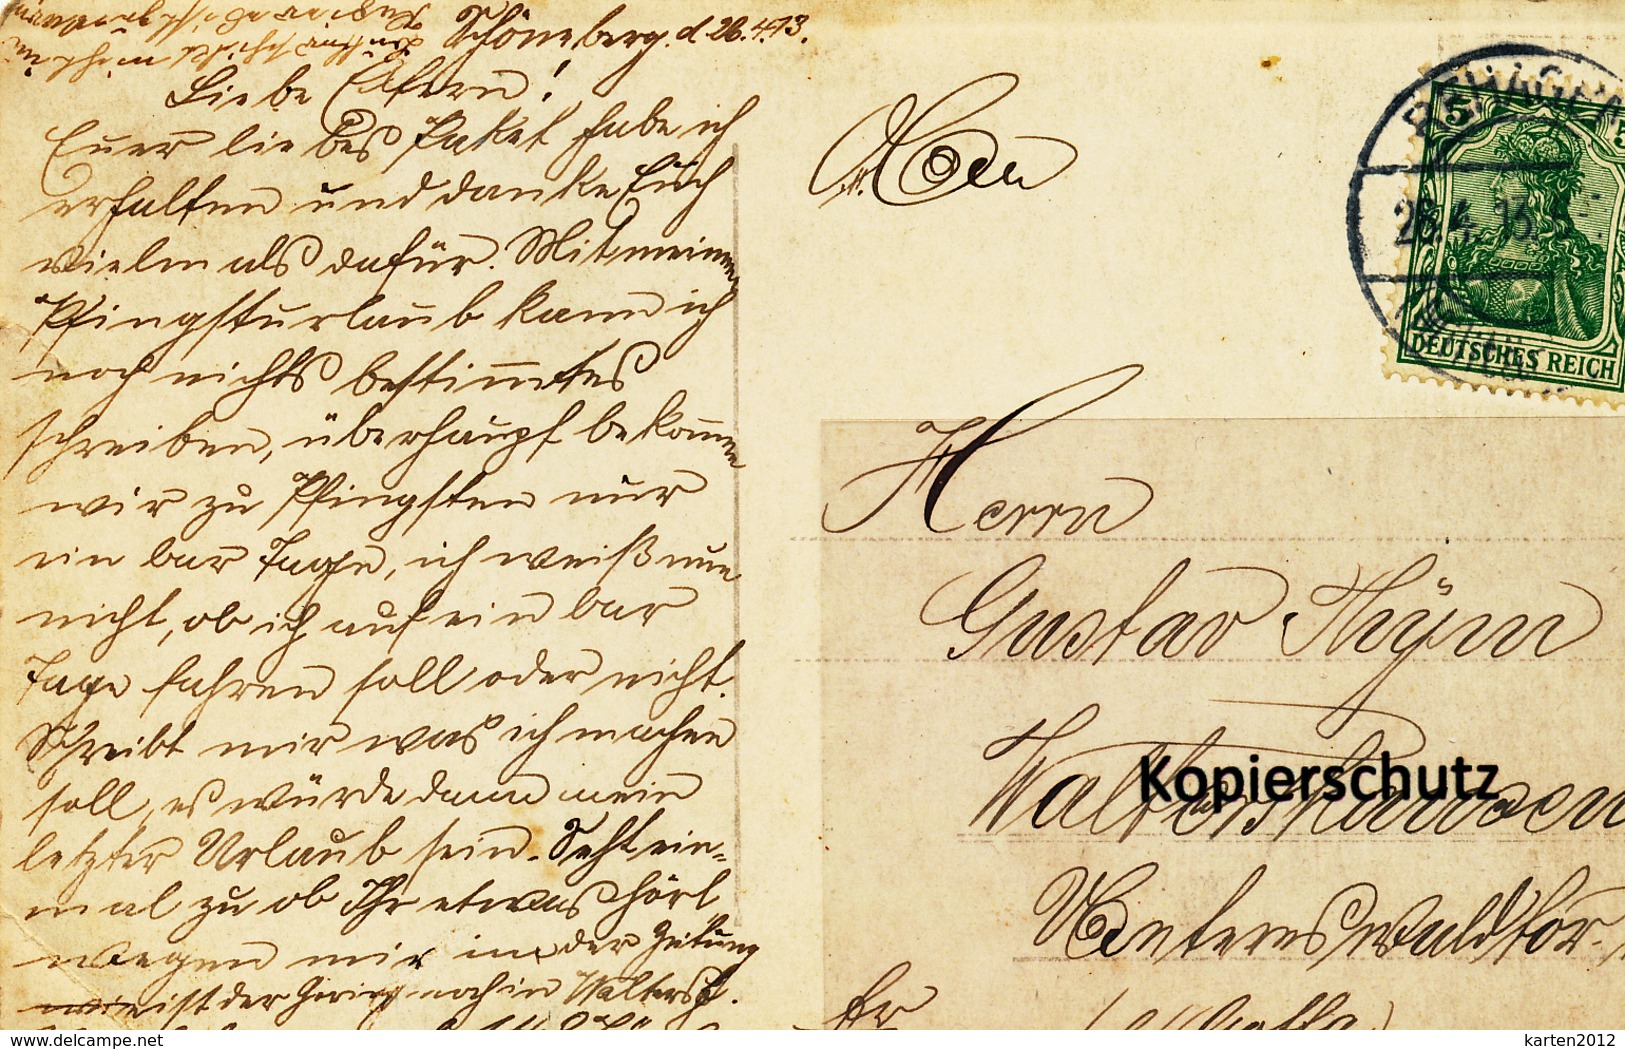 Schöneberg. d. 26.4.13.
Liebe Eltern!
Euer liebes Paket habe ich
erhalten und danke Euch
vielmals dafür. Mit meinem
Pfingsturlaub kann ich
noch nichts bestimmtes
schreiben, überhaupt bekommen
wir zu Pfingsten nur
ein bar Tage, ich weiß nun
nicht, ob ich auf ein bar
Tage fahren soll oder nicht.
Schreibt mir was ich machen
soll, es würde dann mein
letzter Urlaub sein. Seht ein-
mal zu ob Ihr etwas hört
wegen mir in der Zeitung
ist der noch in Waltersh.
Herrn
Gustav Thÿm
Waltershausen
DEUTSCHES REICH
5
26.4.13.
Kopierschutz
delcampe.net
karten2012